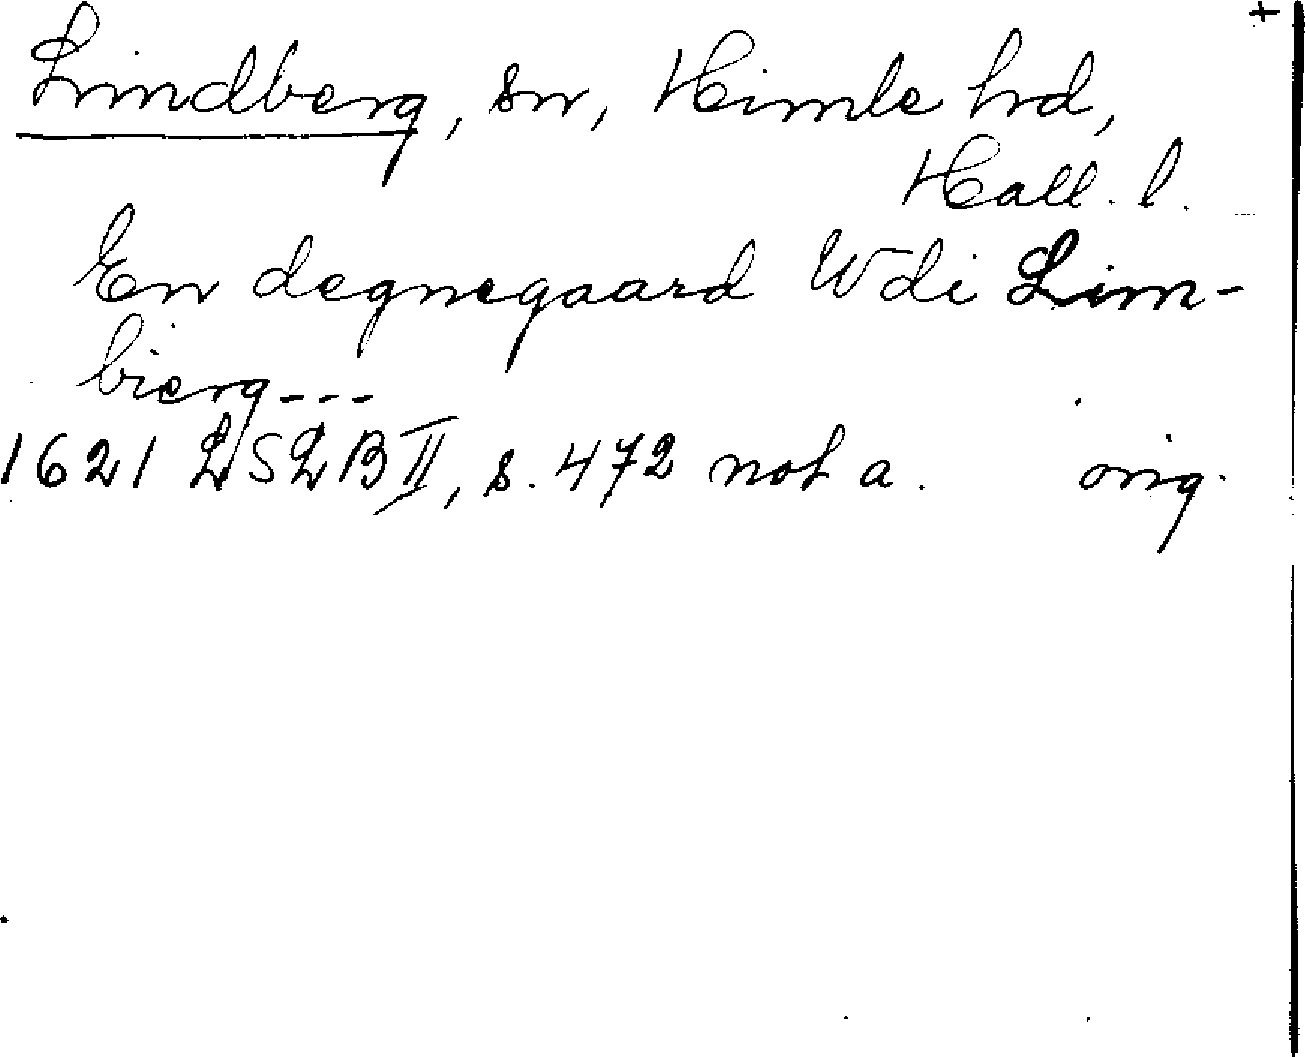 +
Lindberg, sn, Himle hd,
Hall. l.
En degnegaard Wdi Lim-
bierg---
1621 LSLB II, s. 472 not a. orig.